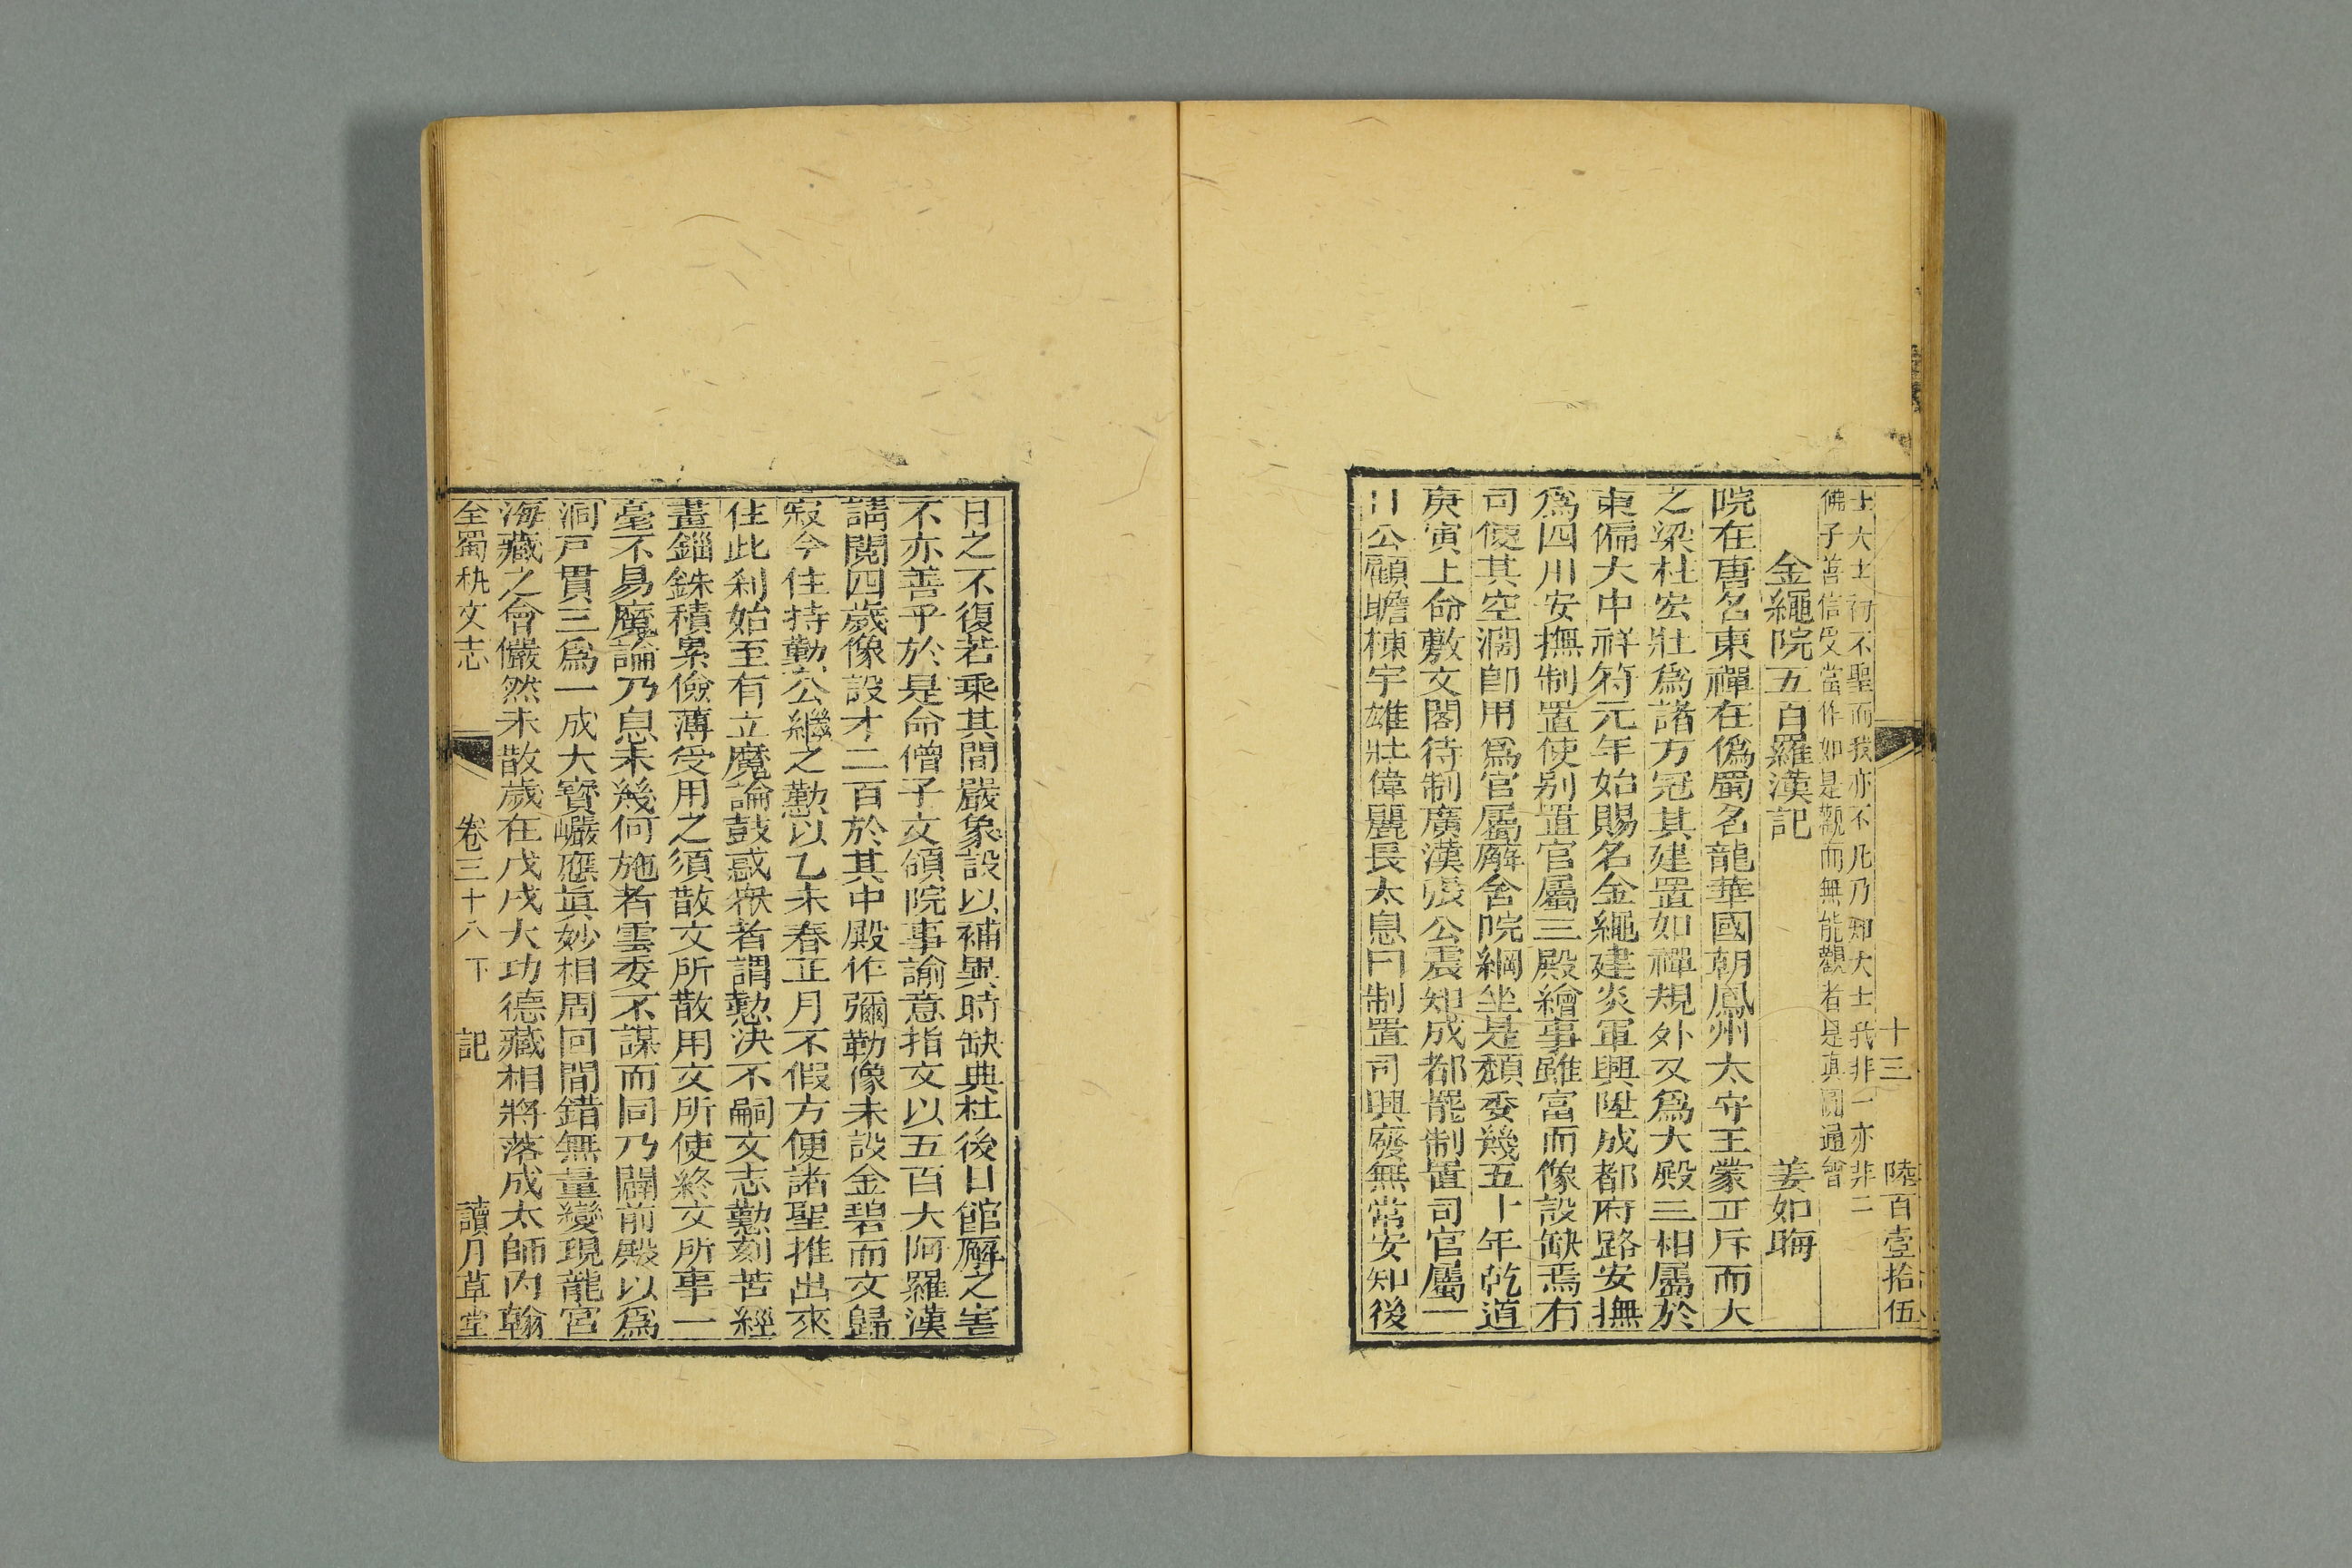 十三 陸百壹拾伍
士大士初不聖而我亦不凡乃知大士我非一亦非二
佛子善信受當作如是觀而無能觀者是真圓通會
金繩院五百羅漢記 姜如晦
院在唐名東禪在僞蜀名龍華國朝鳳州太守王蒙正斥而大
之梁杜宏壯爲諸方冠其建置如禪規外又爲大殿三相屬於
東偏大中祥符元年始賜名金繩建炎軍興陞成都府路安撫
爲四川安撫制置使别置官屬三殿繪事雖富而像設缺焉有
司便其空濶卽用爲官屬廨舍院綱坐是頹委幾五十年乾道
庚寅上命敷文閣待制廣漢張公震知成都罷制置司官屬一
日公顧瞻棟宇雄壯偉麗長太息曰制置司興廢無常安知後
日之不復若乘其間嚴象設以補異時缺典杜後日館廨之害
不亦善乎於是命僧子文領院事諭意指文以五百大阿羅漢
請閱四歲像設才二百於其中殿作彌勒像未設金碧而文歸
寂今住持勤公繼之懃以乙未春正月不假方便諸聖推出來
住此刹始至有立魔論鼓惑衆者謂懃決不嗣文志懃刻苦經
畫錙銖積累儉薄受用之須散文所散用文所使終文所事一
毫不易魔論乃息未幾何施者雲委不謀而同乃闢前殿以爲
洞戸貫三爲一成大寶巗應眞妙相周回間錯無量變現龍宮
海藏之會儼然未散歲在戊戌大功德藏相將落成太師内翰
全蜀秇文志 卷三十八下 記 讀月草堂